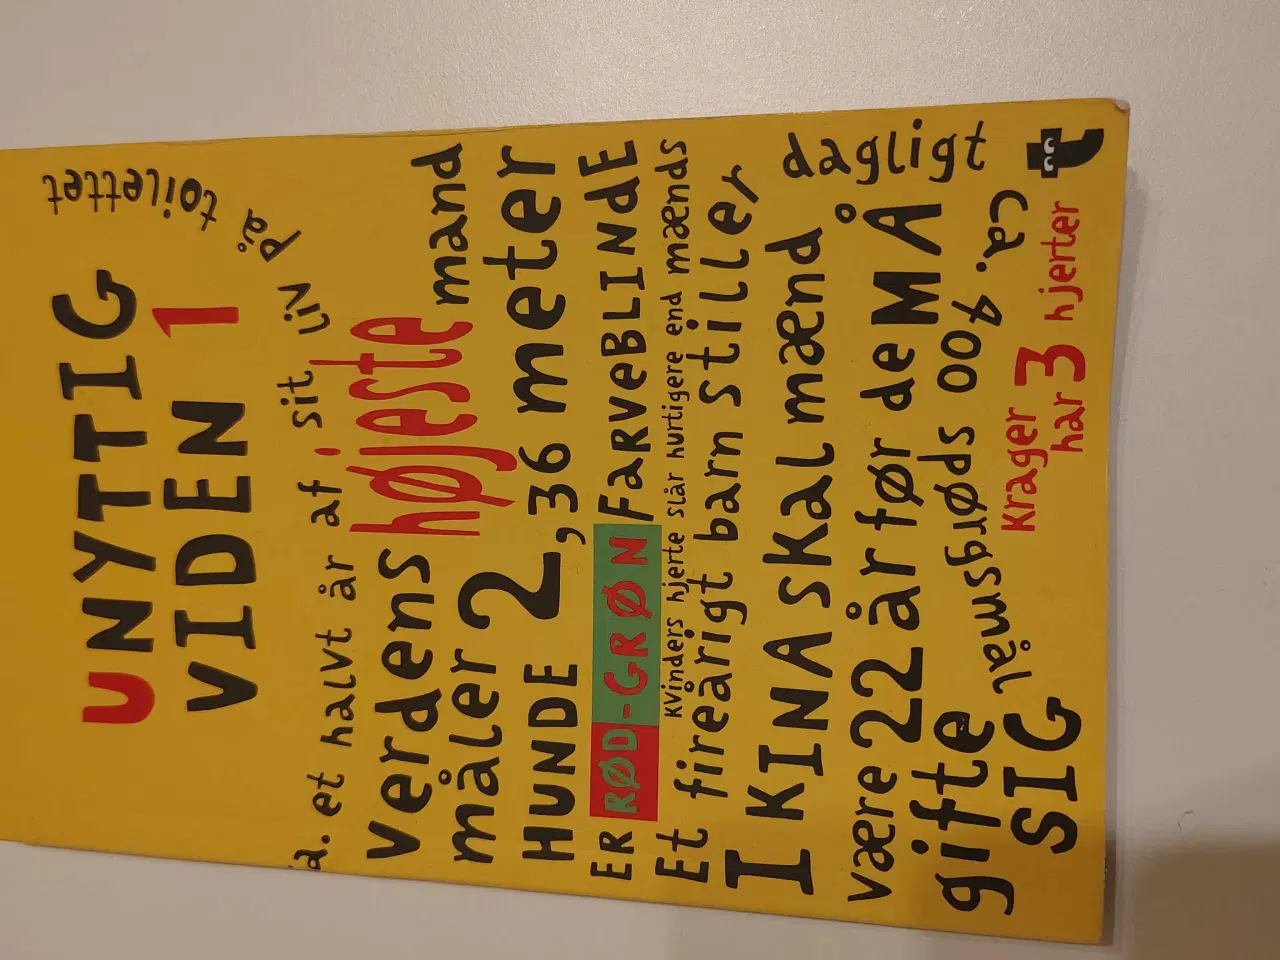 UNYTTIG
VIDEN 1
a. et halvt år af sit liv på toilettet
Verdens højeste mand
måler 2,36 meter
HUNDE
ER RØD-GRØN FARVEBLINDE
Kvinders hjerte slår hurtigere end mænds
Et fireårigt barn stiller
ca. 400 spørgsmål dagligt
I KINA skal mænd
være 22 år før de MÅ
gifte
SIG
Krager
har 3 hjerter